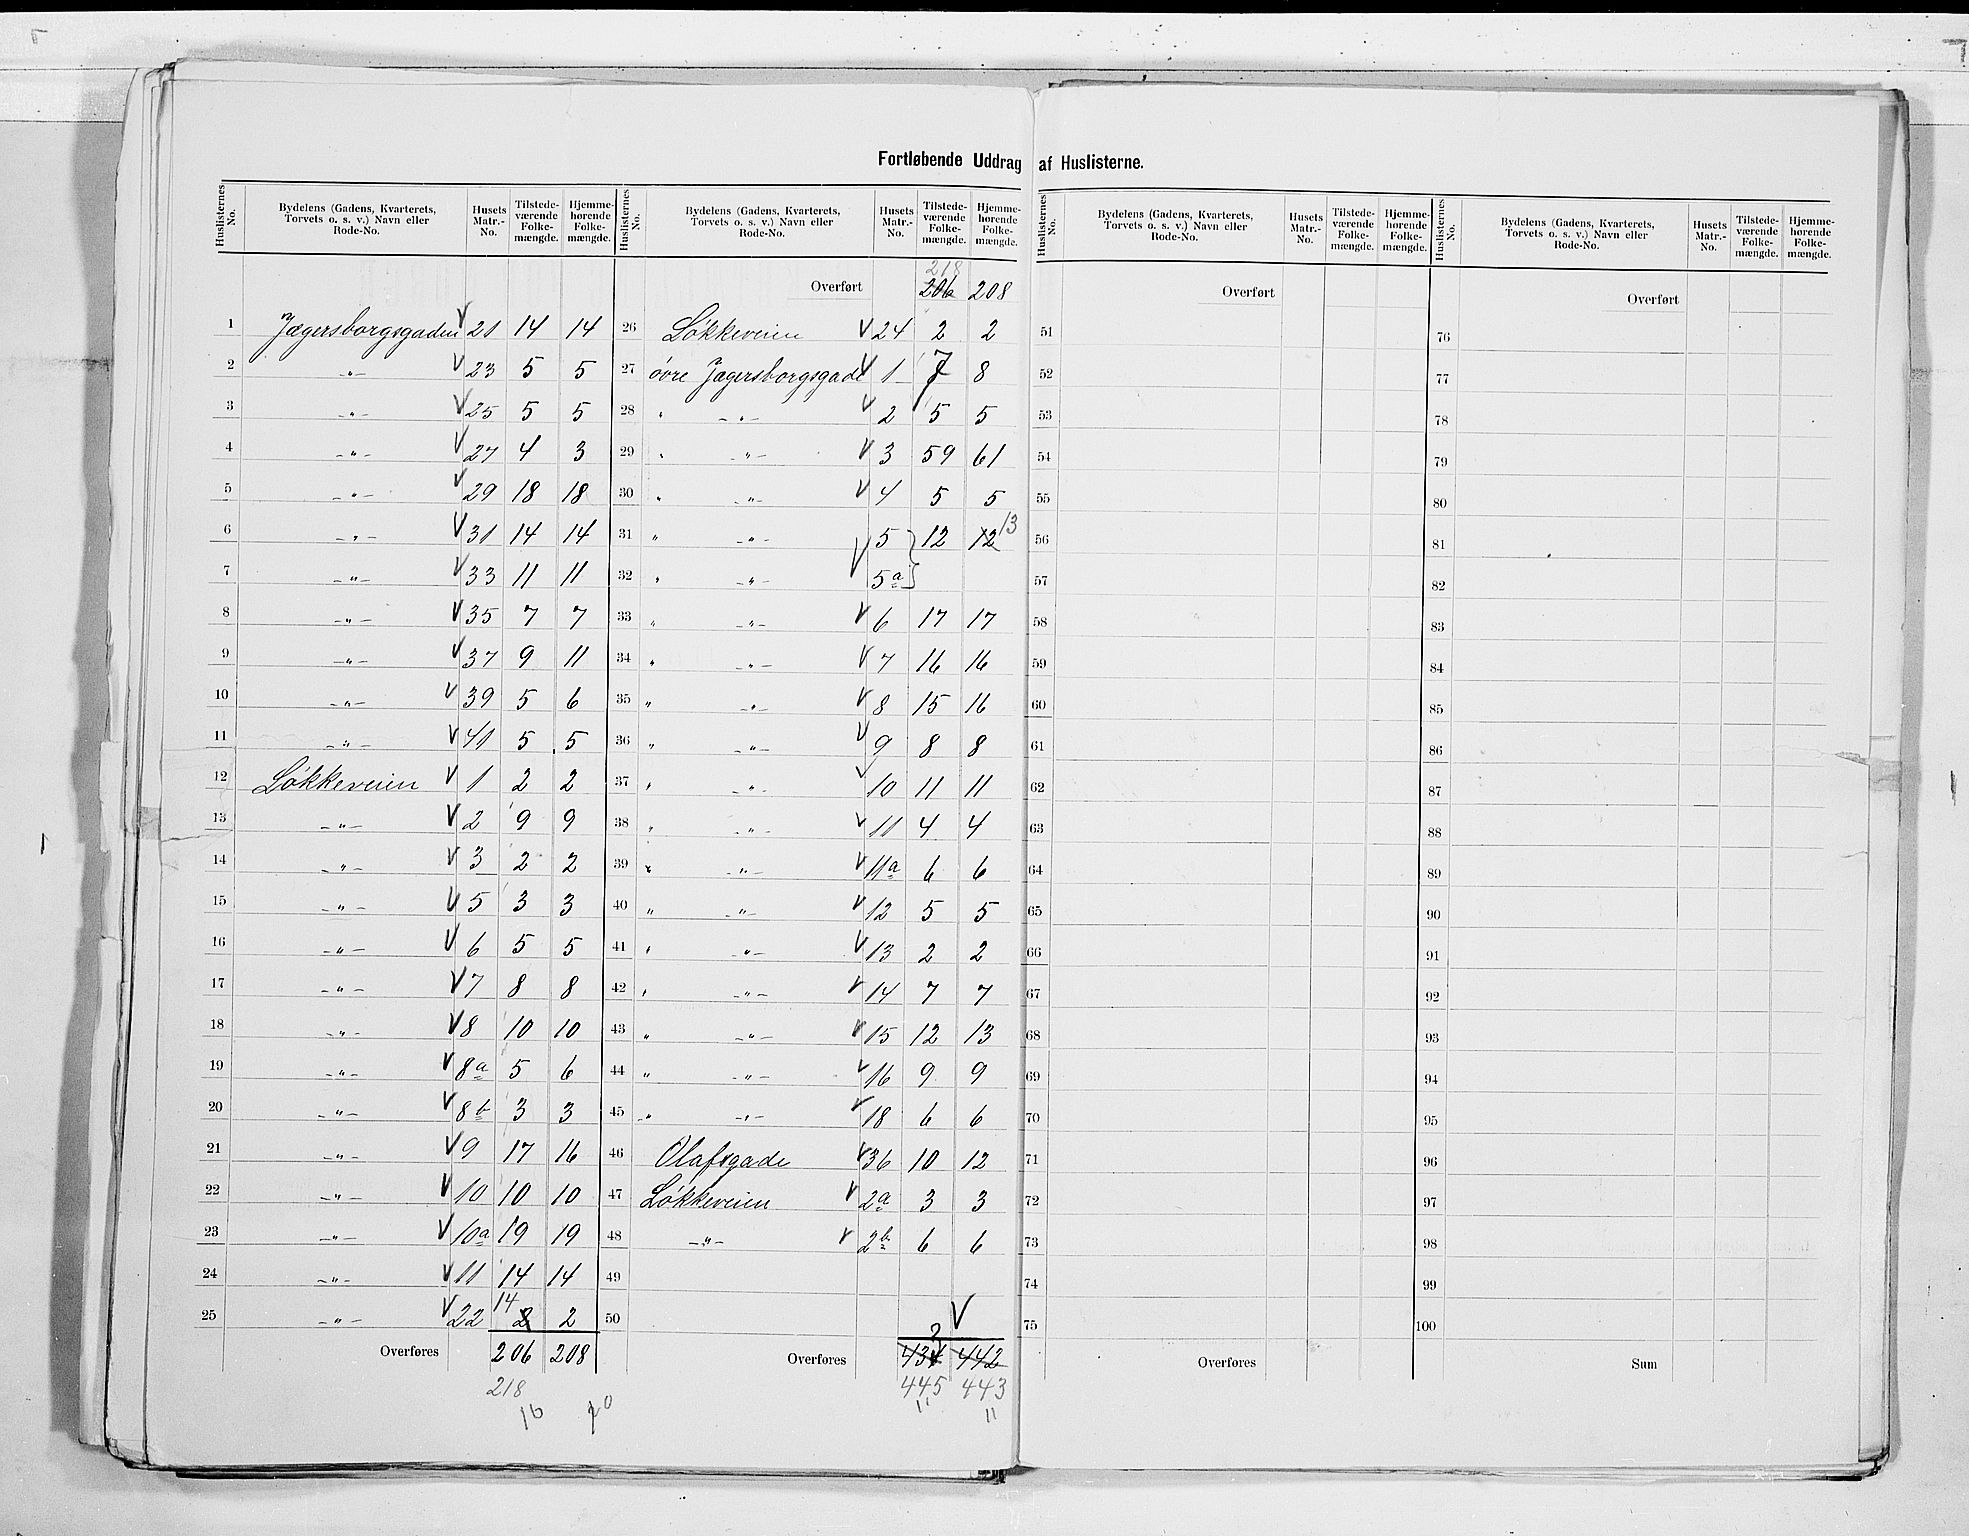 Fortløbende Uddrag af Huslisterne.
Huslisternes No. | Bydelens (Gadens, Kvarterets, Torvets o. s. v.) Navn eller Rode-No. | Husets Matr.-No. | Tilstede-værende Folke-mængde. | Hjemme-hørende Folke-mængde. | Huslisternes No. | Bydelens (Gadens, Kvarterets, Torvets o. s. v.) Navn eller Rode-No. | Husets Matr.-No. | Tilstede-værende Folke-mængde. | Hjemme-hørende Folke-mængde.
218
Overført 206 208
1 Jægersborgsgaden V 21 14 14 26 Løkkeveien V 24 2 2
2 -"- V 23 5 5 27 øvre Jægersborgsgade V 1 7 8
3 -"- V 25 5 5 28 " -"- V 2 5 5
4 -"- V 27 4 3 29 " -"- V 3 59 61
5 -"- V 29 18 18 30 " -"- V 4 5 5
6 -"- V 31 14 14 31 " -"- V 5 } 12 12 13
7 -"- V 33 11 11 32 " -"- 5a }
8 -"- V 35 7 7 33 " -"- V 6 17 17
9 -"- V 37 9 11 34 " -"- V 7 16 16
10 -"- V 39 5 6 35 " -"- V 8 15 16
11 -"- V 41 5 5 36 " -"- V 9 8 8
12 Løkkeveien V 1 2 2 37 " -"- V 10 11 11
13 -"- V 2 9 9 38 " -"- V 11 4 4
14 -"- V 3 2 2 39 " -"- V 11a 6 6
15 -"- V 5 3 3 40 " -"- V 12 5 5
16 -"- V 6 5 5 41 " -"- V 13 2 2
17 -"- V 7 8 8 42 " -"- V 14 7 7
18 -"- V 8 10 10 43 " -"- V 15 12 13
19 -"- V 8a 5 6 44 " -"- V 16 9 9
20 -"- V 8b 3 3 45 " -"- V 18 6 6
21 -"- V 9 17 16 46 Olafsgade V 36 10 12
22 -"- V 10 10 10 47 Løkkeveien V 2a 3 3
23 -"- V 10a 19 19 48 -"- V 2b 6 6
24 -"- V 11 14 14 49
25 -"- V 22 14 2 2 50 V
Overføres 206 208 Overføres 434 3 442
218 445 443
16 11 11
Huslisternes No. | Bydelens (Gadens, Kvarterets, Torvets o. s. v.) Navn eller Rode-No. | Husets Matr.-No. | Tilstede-værende Folke-mængde. | Hjemme-hørende Folke-mængde. | Huslisternes No. | Bydelens (Gadens, Kvarterets, Torvets o. s. v.) Navn eller Rode-No. | Husets Matr.-No. | Tilstede-værende Folke-mængde. | Hjemme-hørende Folke-mængde.
Overført Overført
51 76
52 77
53 78
54 79
55 80
56 81
57 82
58 83
59 84
60 85
61 86
62 87
63 88
64 89
65 90
66 91
67 92
68 93
69 94
70 95
71 96
72 97
73 98
74 99
75 100
Overføres Sum